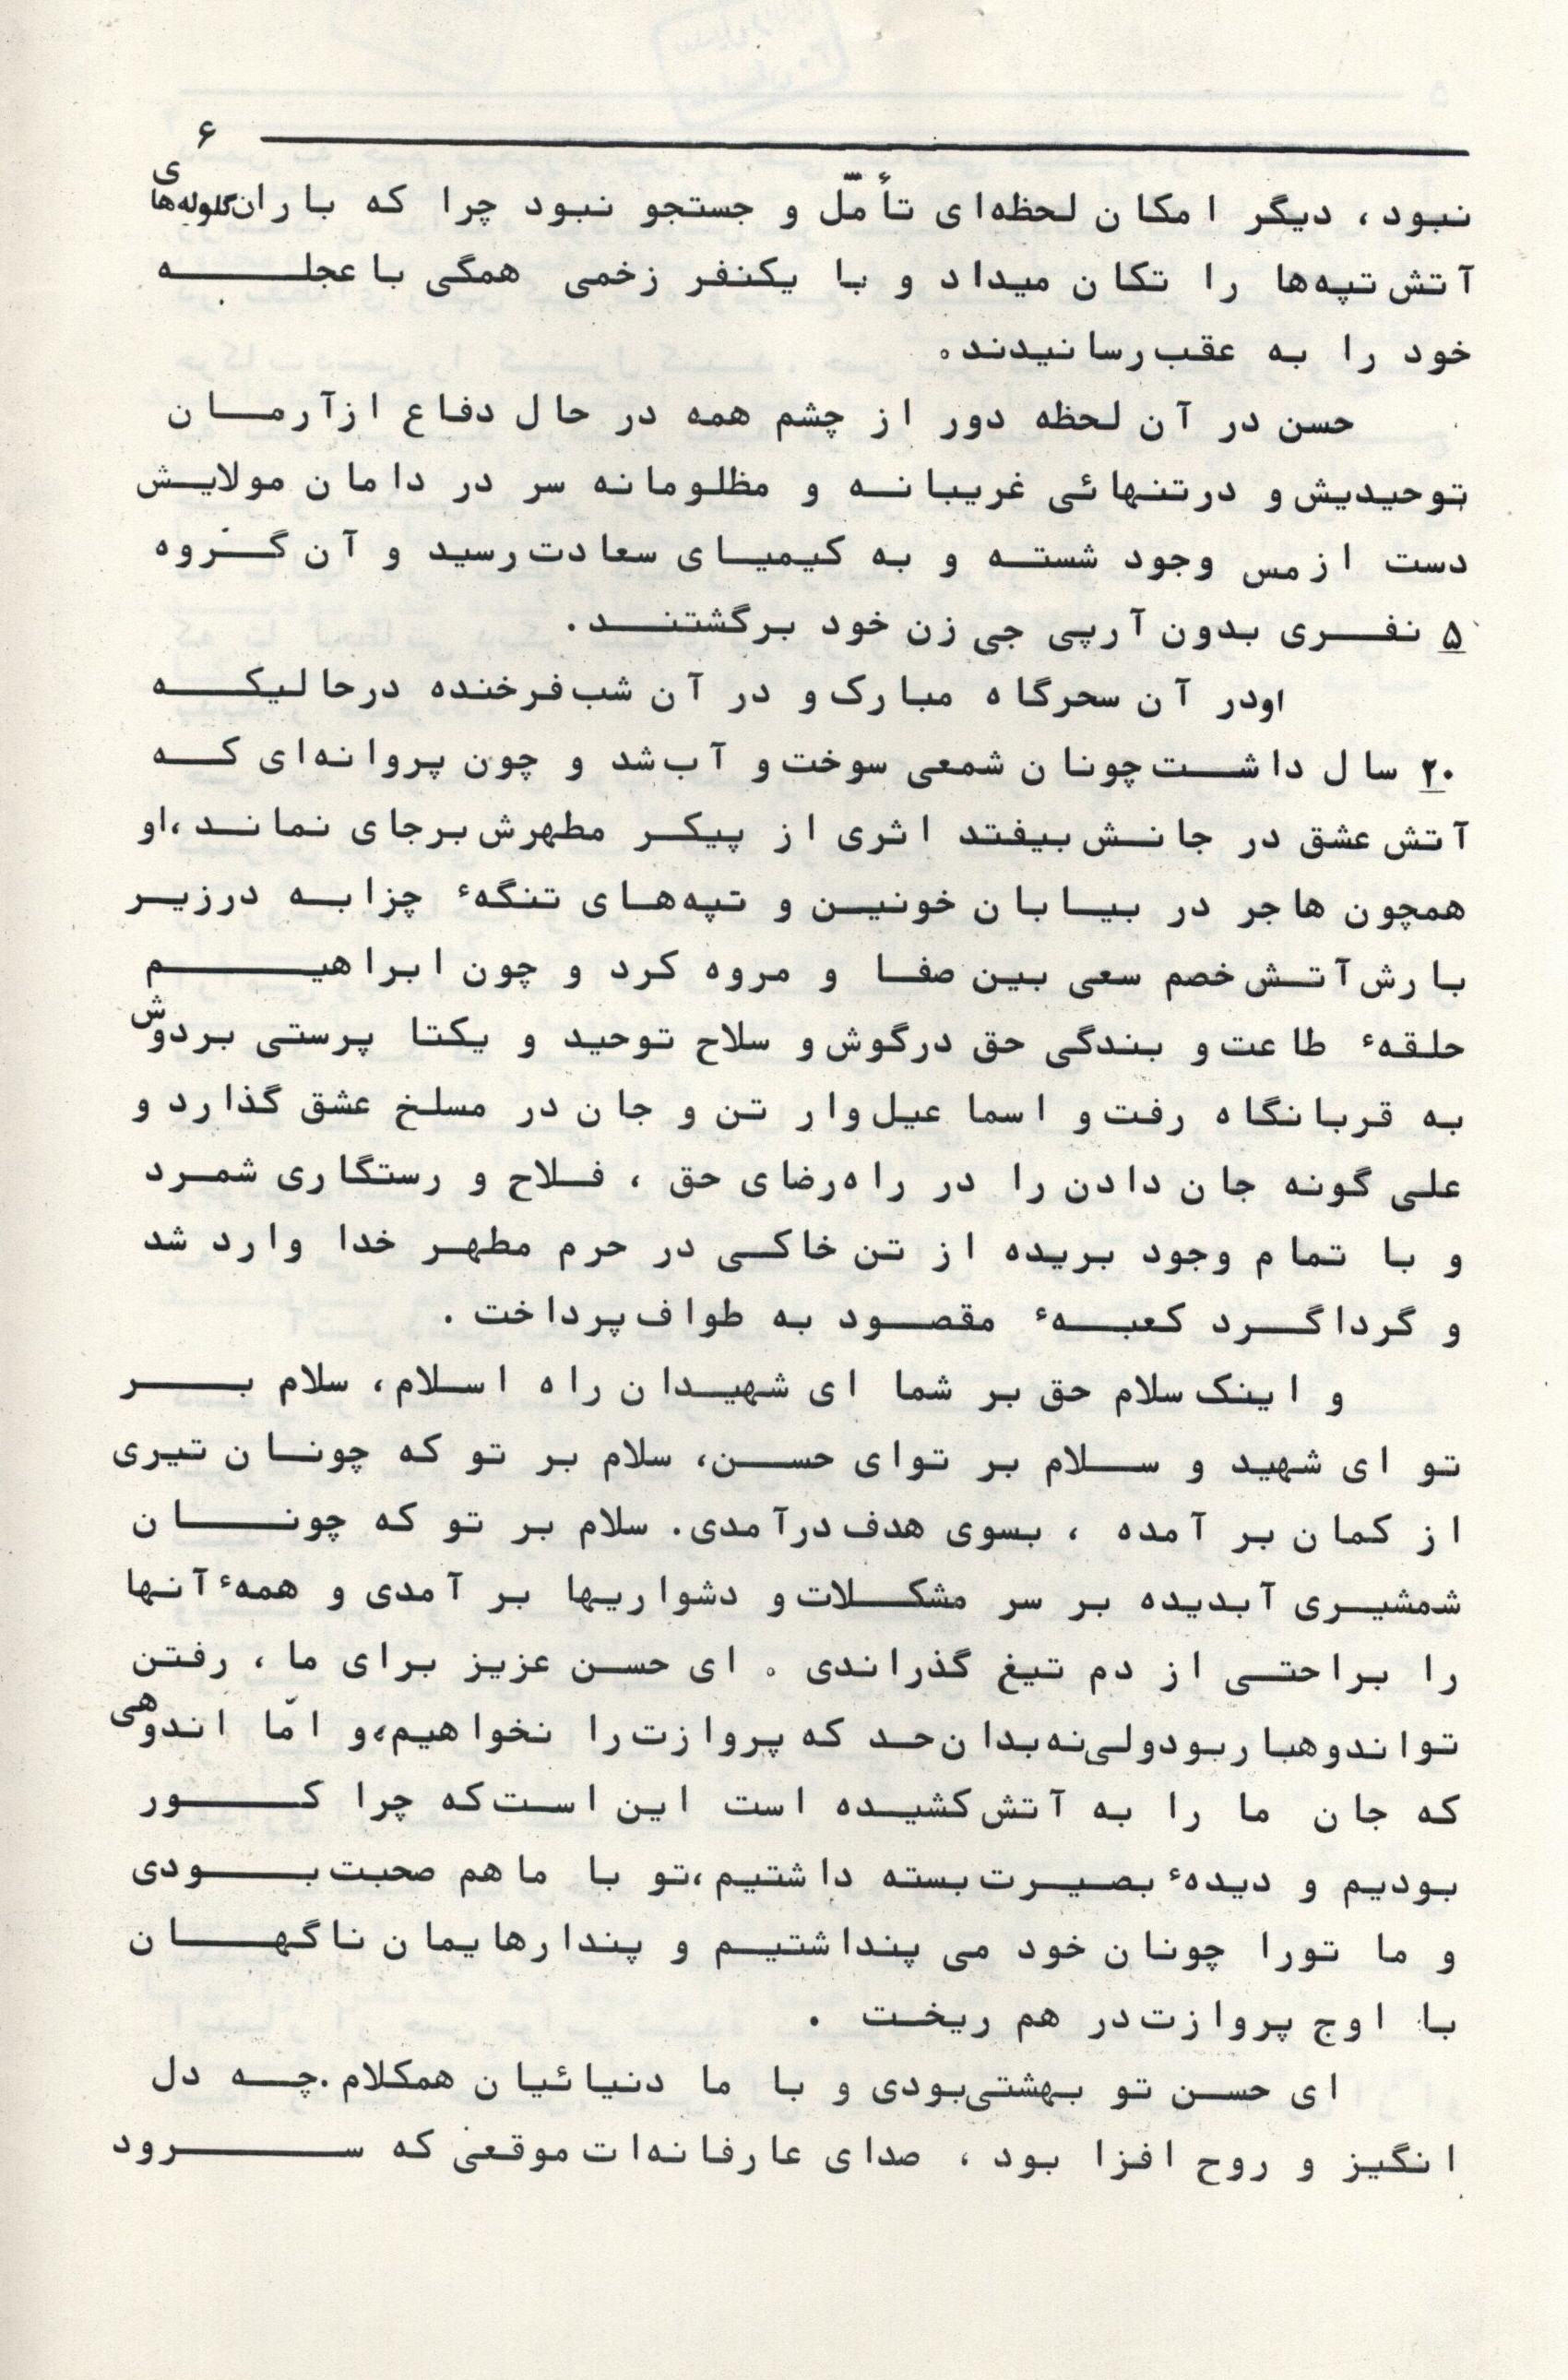 ۶
نبود، دیگر امکان لحظه‌ای تأمّل و جستجو نبود چرا که باران گلوله‌های
آتش تپه‌ها را تکان میداد و با یکنفر زخمی همگی با عجله
خود را به عقب رسانیدند.
حسن در آن لحظه دور از چشم همه در حال دفاع از آرمان
توحیدیش و در تنهائی غریبانه و مظلومانه سر در دامان مولایش
دست از مس وجود شسته و به کیمیای سعادت رسید و آن گروه
۵ نفری بدون آرپی جی زن خود برگشتند.
او در آن سحرگاه مبارک و در آن شب فرخنده درحالیکه
۲۰ سال داشت چونان شمعی سوخت و آب شد و چون پروانه‌ای که
آتش عشق در جانش بیفتد اثری از پیکر مطهرش برجای نماند، او
همچون هاجر در بیابان خونین و تپه‌های تنگهٔ چزابه در زیر
بارش آتش خصم سعی بین صفا و مروه کرد و چون ابراهیم
حلقهٔ طاعت و بندگی حق در گوش و سلاح توحید و یکتا پرستی بر دوش
به قربانگاه رفت و اسماعیل وار تن و جان در مسلخ عشق گذارد و
علی گونه جان دادن را در راه رضای حق ، فلاح و رستگاری شمرد
و با تمام وجود بریده از تن خاکی در حرم مطهر خدا وارد شد
و گرداگرد کعبهٔ مقصود به طواف پرداخت .
و اینک سلام حق بر شما ای شهیدان راه اسلام، سلام بر
تو ای شهید و سلام بر تو ای حسن، سلام بر تو که چونان تیری
از کمان بر آمده ، بسوی هدف درآمدی. سلام بر تو که چونان
شمشیری آبدیده بر سر مشکلات و دشواریها بر آمدی و همهٔ آنها
را براحتی از دم تیغ گذراندی . ای حسن عزیز برای ما ، رفتن
تو اندوهبار بود ولی نه بدان حد که پروازت را نخواهیم، و امّا اندوهی
که جان ما را به آتش کشیده است این است که چرا کور
بودیم و دیدهٔ بصیرت بسته داشتیم، تو با ما هم صحبت بودی
و ما تورا چونان خود می پنداشتیم و پندارهایمان ناگهان
با اوج پروازت در هم ریخت .
ای حسن تو بهشتی بودی و با ما دنیائیان همکلام. چه دل
انگیز و روح افزا بود ، صدای عارفانه‌ات موقعی که سرود